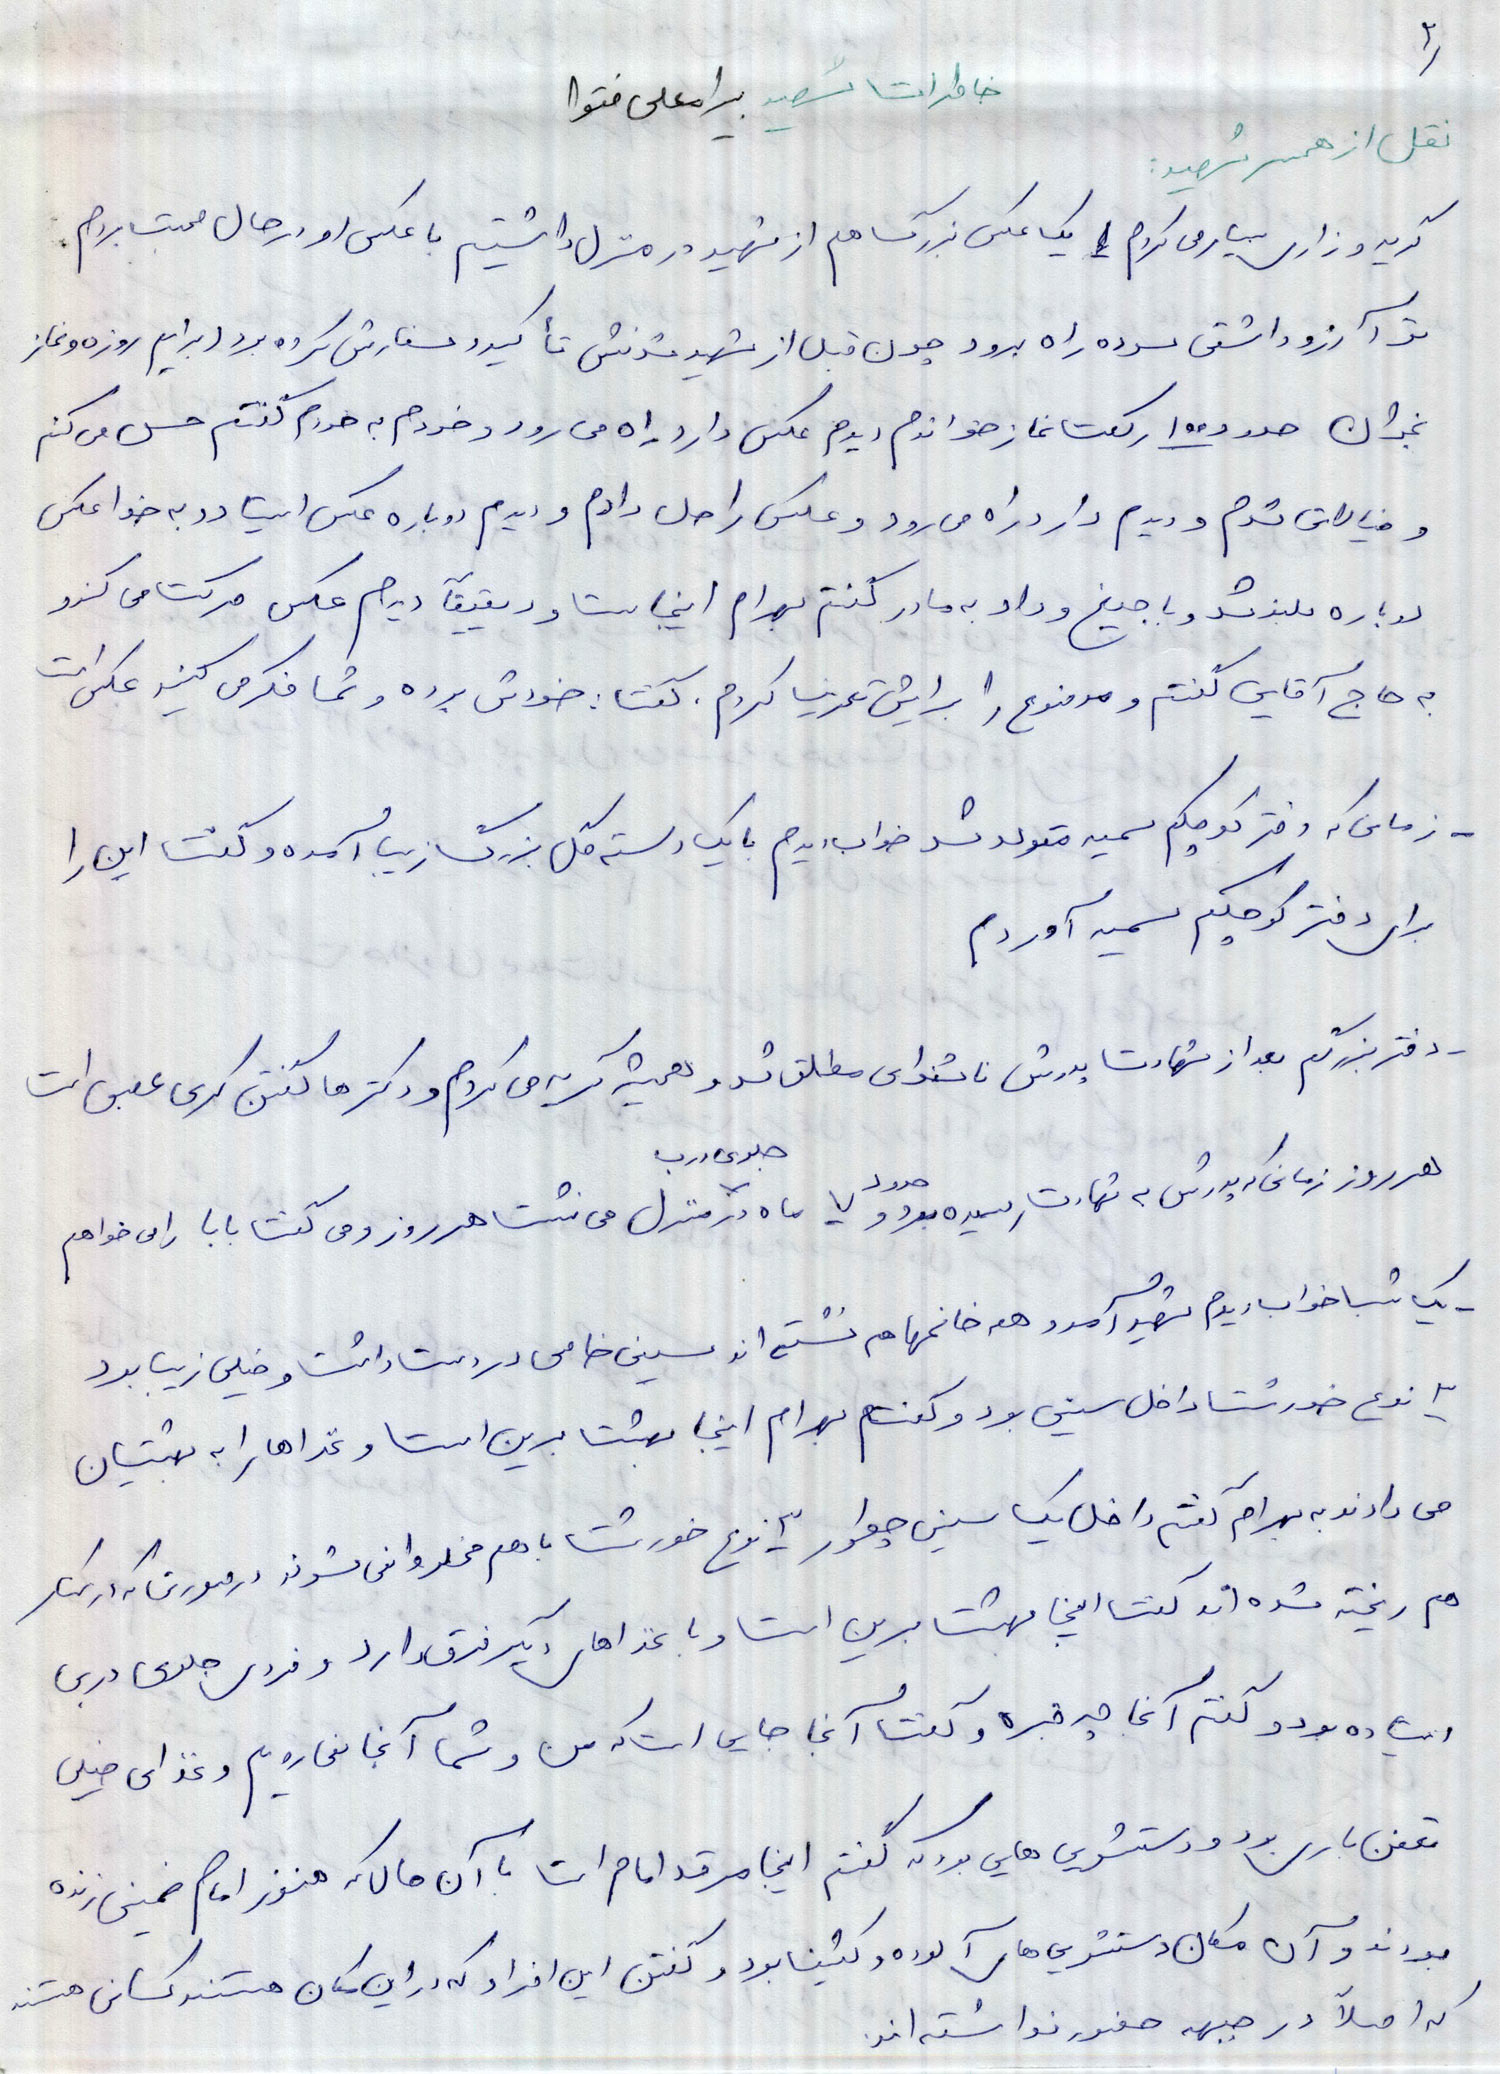 ۳
خاطرات شهید بیرامعلی فتوا
نقل از همسر شهید:
گریه و زاری بسیار می کردم یک عکس بزرگ هم از شهید در منزل داشتیم با عکس او در حال صحبت بودم.
تو آرزو داشتی راه برود چون قبل از شهید شدنش تأکید و سفارش کرده بود برایم روزه و نماز
بخوان حدود ۱۰۰ رکعت نماز خواندم دیدم عکس دارد راه می رود و خودم به خودم گفتم حس می کنم
و خیالاتی شدم و دیدم دارد راه می رود و عکس را هل دادم و دیدم دوباره عکس ایستاد و به خدا عکس
دوباره بلند شد و با جیغ و داد به مادر گفتم بهرام اینجاست و دقیقاً دیدم عکس حرکت می کند و
به حاج آقایی گفتم و موضوع را برایش تعریف کردم. گفت: خودش بوده و شما فکر می کنید عکس است
- زمانی که دختر کوچکم سمیه متولد شد خواب دیدم با یک دسته گل بزرگ زیبا آمده و گفت این را
برای دختر کوچکم سمیه آوردم
- دختر بزرگم بعد از شهادت پدرش ناشنوای مطلق شد و همیشه گریه می کردم و دکترها گفتن کری عصبی است
هر روز زمانی که پدرش به شهادت رسیده بود و حدود ۷ ماه جلوی درب منزل می نشست هر روز و می گفت بابا را می خواهم
- یک شب خواب دیدم شهید آمد و همه خانمها هم نشسته اند سینی خاصی در دست داشت و خیلی زیبا بود
۳ نوع خورشت داخل سینی بود و گفتم بهرام اینجا بهشت برین است و غذاها را به بهشتیان
می دادند به بهرام گفتم داخل یک سینی چطور ۳ نوع خورشت با هم مخلوط نمی شوند در صورتی که در کنار
هم ریخته شده اند گفت اینجا بهشت برین است و با غذاهای دیگر فرق دارد و فردی جلوی دربی
ایستاده بود و گفتم آنجا چه خبره و گفت آنجا جایی است که من و شما آنجا نمی رویم و غذای خیلی
تعفن باری بود و دستشویی هایی بود که گفتم اینجا مرقد امام است با آن حال که هنوز امام خمینی زنده
بودند و آن مکان دستشویی های آلوده و کثیف بود و گفتن این افراد که در این مکان هستند کسانی هستند
که اصلاً در جبهه حضور نداشته اند.